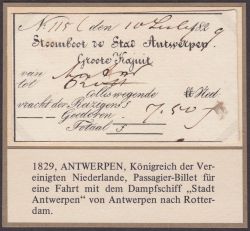 N. 115 den 10 July 1829
Stoomboot de Stad Antwerpen
Groote Kajuit
van
tot
Collo wegende ℔ Ned
vracht der Reizigers 7.50
Goederen
Totaal
1829, ANTWERPEN, Königreich der Ver-
einigten Niederlande, Passagier-Billet für
eine Fahrt mit dem Dampfschiff „Stadt
Antwerpen" von Antwerpen nach Rotter-
dam.